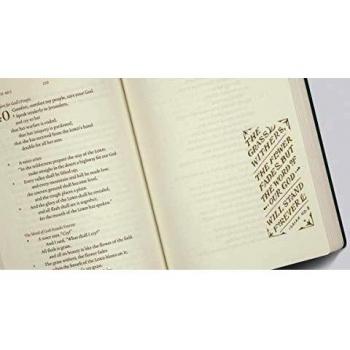 fort for God's People
40 Comfort, comfort my people, says your God.
Speak tenderly to Jerusalem,
and cry to her
that her warfare is ended,
that her iniquity is pardoned,
that she has received from the LORD's hand
double for all her sins.
A voice cries:
"In the wilderness prepare the way of the LORD;
make straight in the desert a highway for our God.
Every valley shall be lifted up,
and every mountain and hill be made low;
the uneven ground shall become level,
and the rough places a plain.
And the glory of the LORD shall be revealed,
and all flesh shall see it together,
for the mouth of the LORD has spoken."
The Word of God Stands Forever
A voice says, "Cry!"
And I said, "What shall I cry?"
All flesh is grass,
and all its beauty is like the flower of the field.
The grass withers, the flower fades
when the breath of the LORD blows on it;
THE
GRASS
WITHERS,
THE FLOWER
FADES, BUT
THE WORD OF
OUR GOD
WILL STAND
FOREVER
ISAIAH 40:8